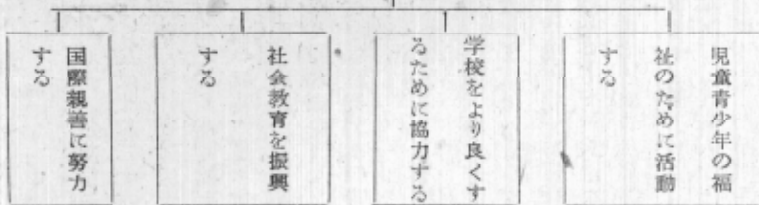 児童青少年の福
祉のために活動
する
学校をより良くす
るために協力する
社会教育を振興
する
国際親善に努力
する